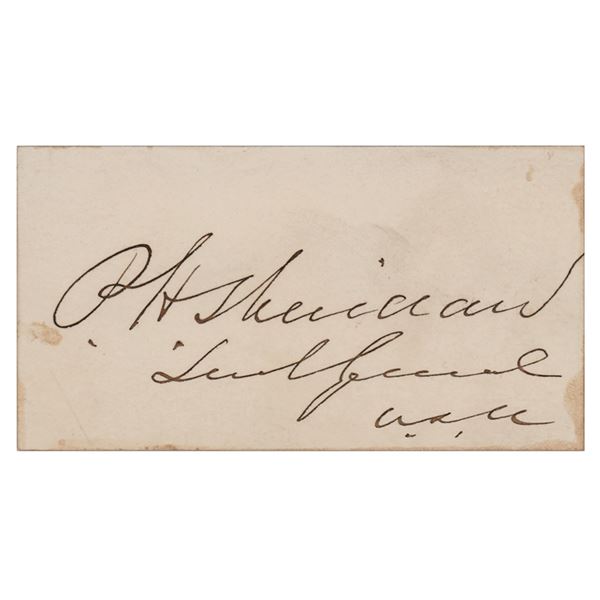 P H Sheridan
Lieut General
U.S.A.